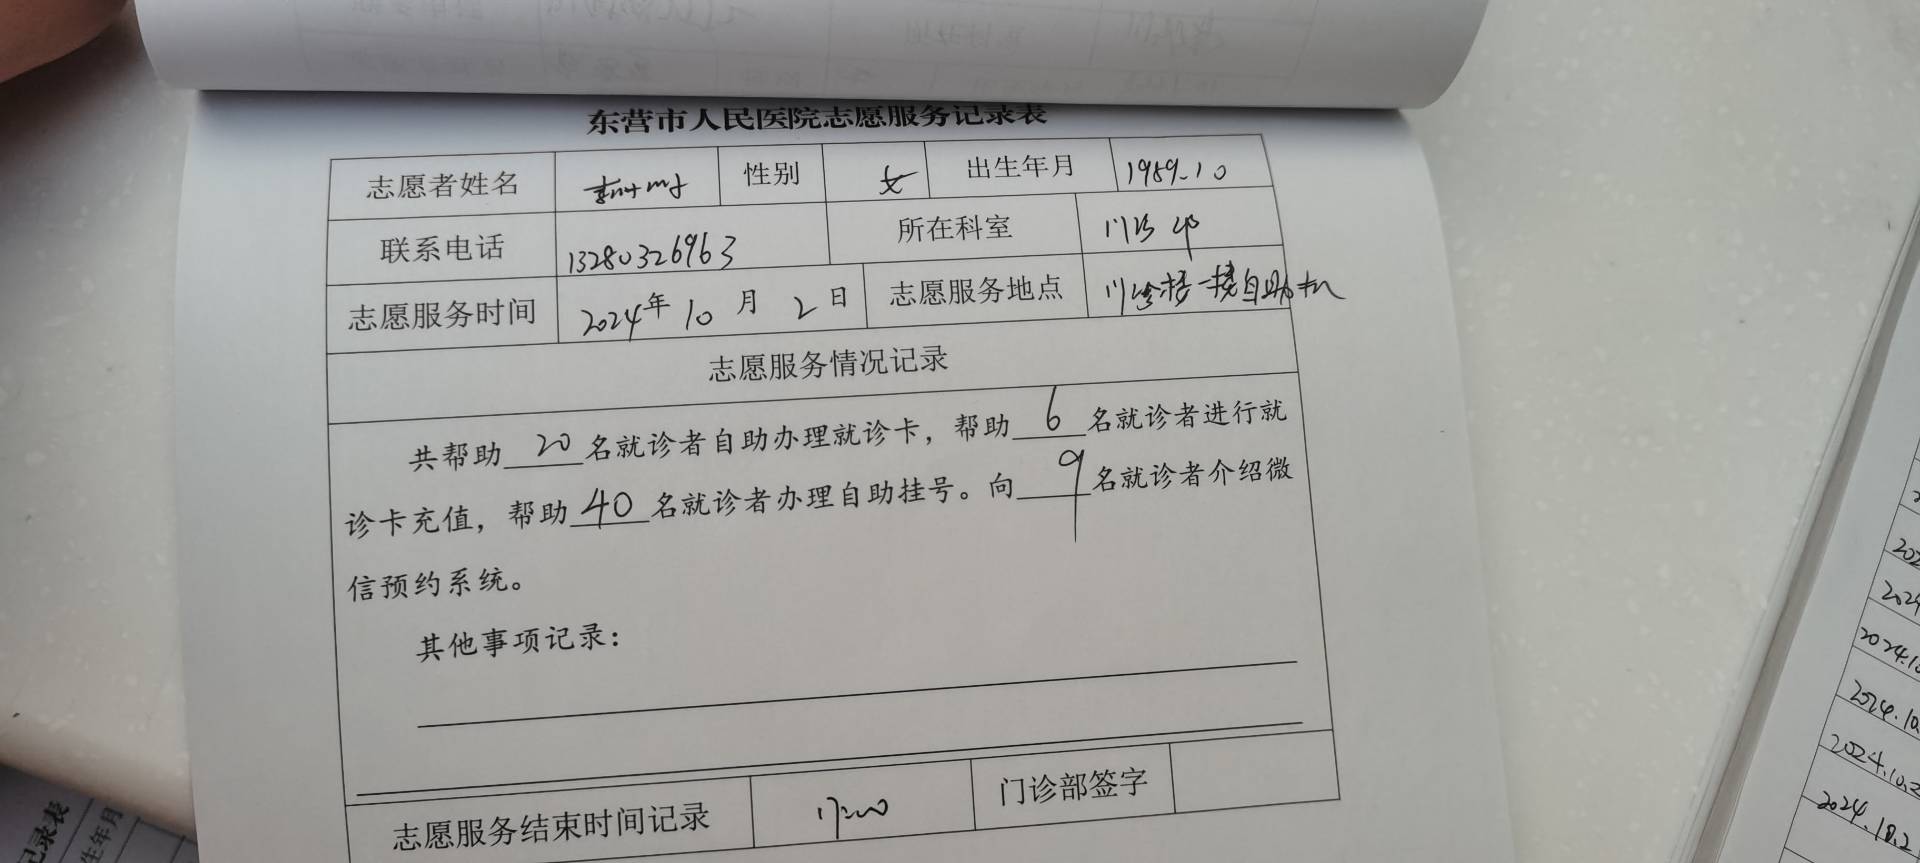 东营市人民医院志愿服务记录表
志愿者姓名 性别 女 出生年月 1989.10
联系电话 13280326963 所在科室 门诊部
志愿服务时间 2024年10月2日 志愿服务地点 门诊楼一楼自助机
志愿服务情况记录
共帮助20名就诊者自助办理就诊卡，帮助6名就诊者进行就
诊卡充值，帮助40名就诊者办理自助挂号。向9名就诊者介绍微
信预约系统。
其他事项记录：
志愿服务结束时间记录 17:00 门诊部签字
记录表
生年月
2024
2024.10
2024.10.2
2024.10.2